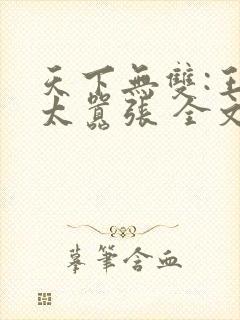 天下無雙:王
太囂張 全文
摹筆含血